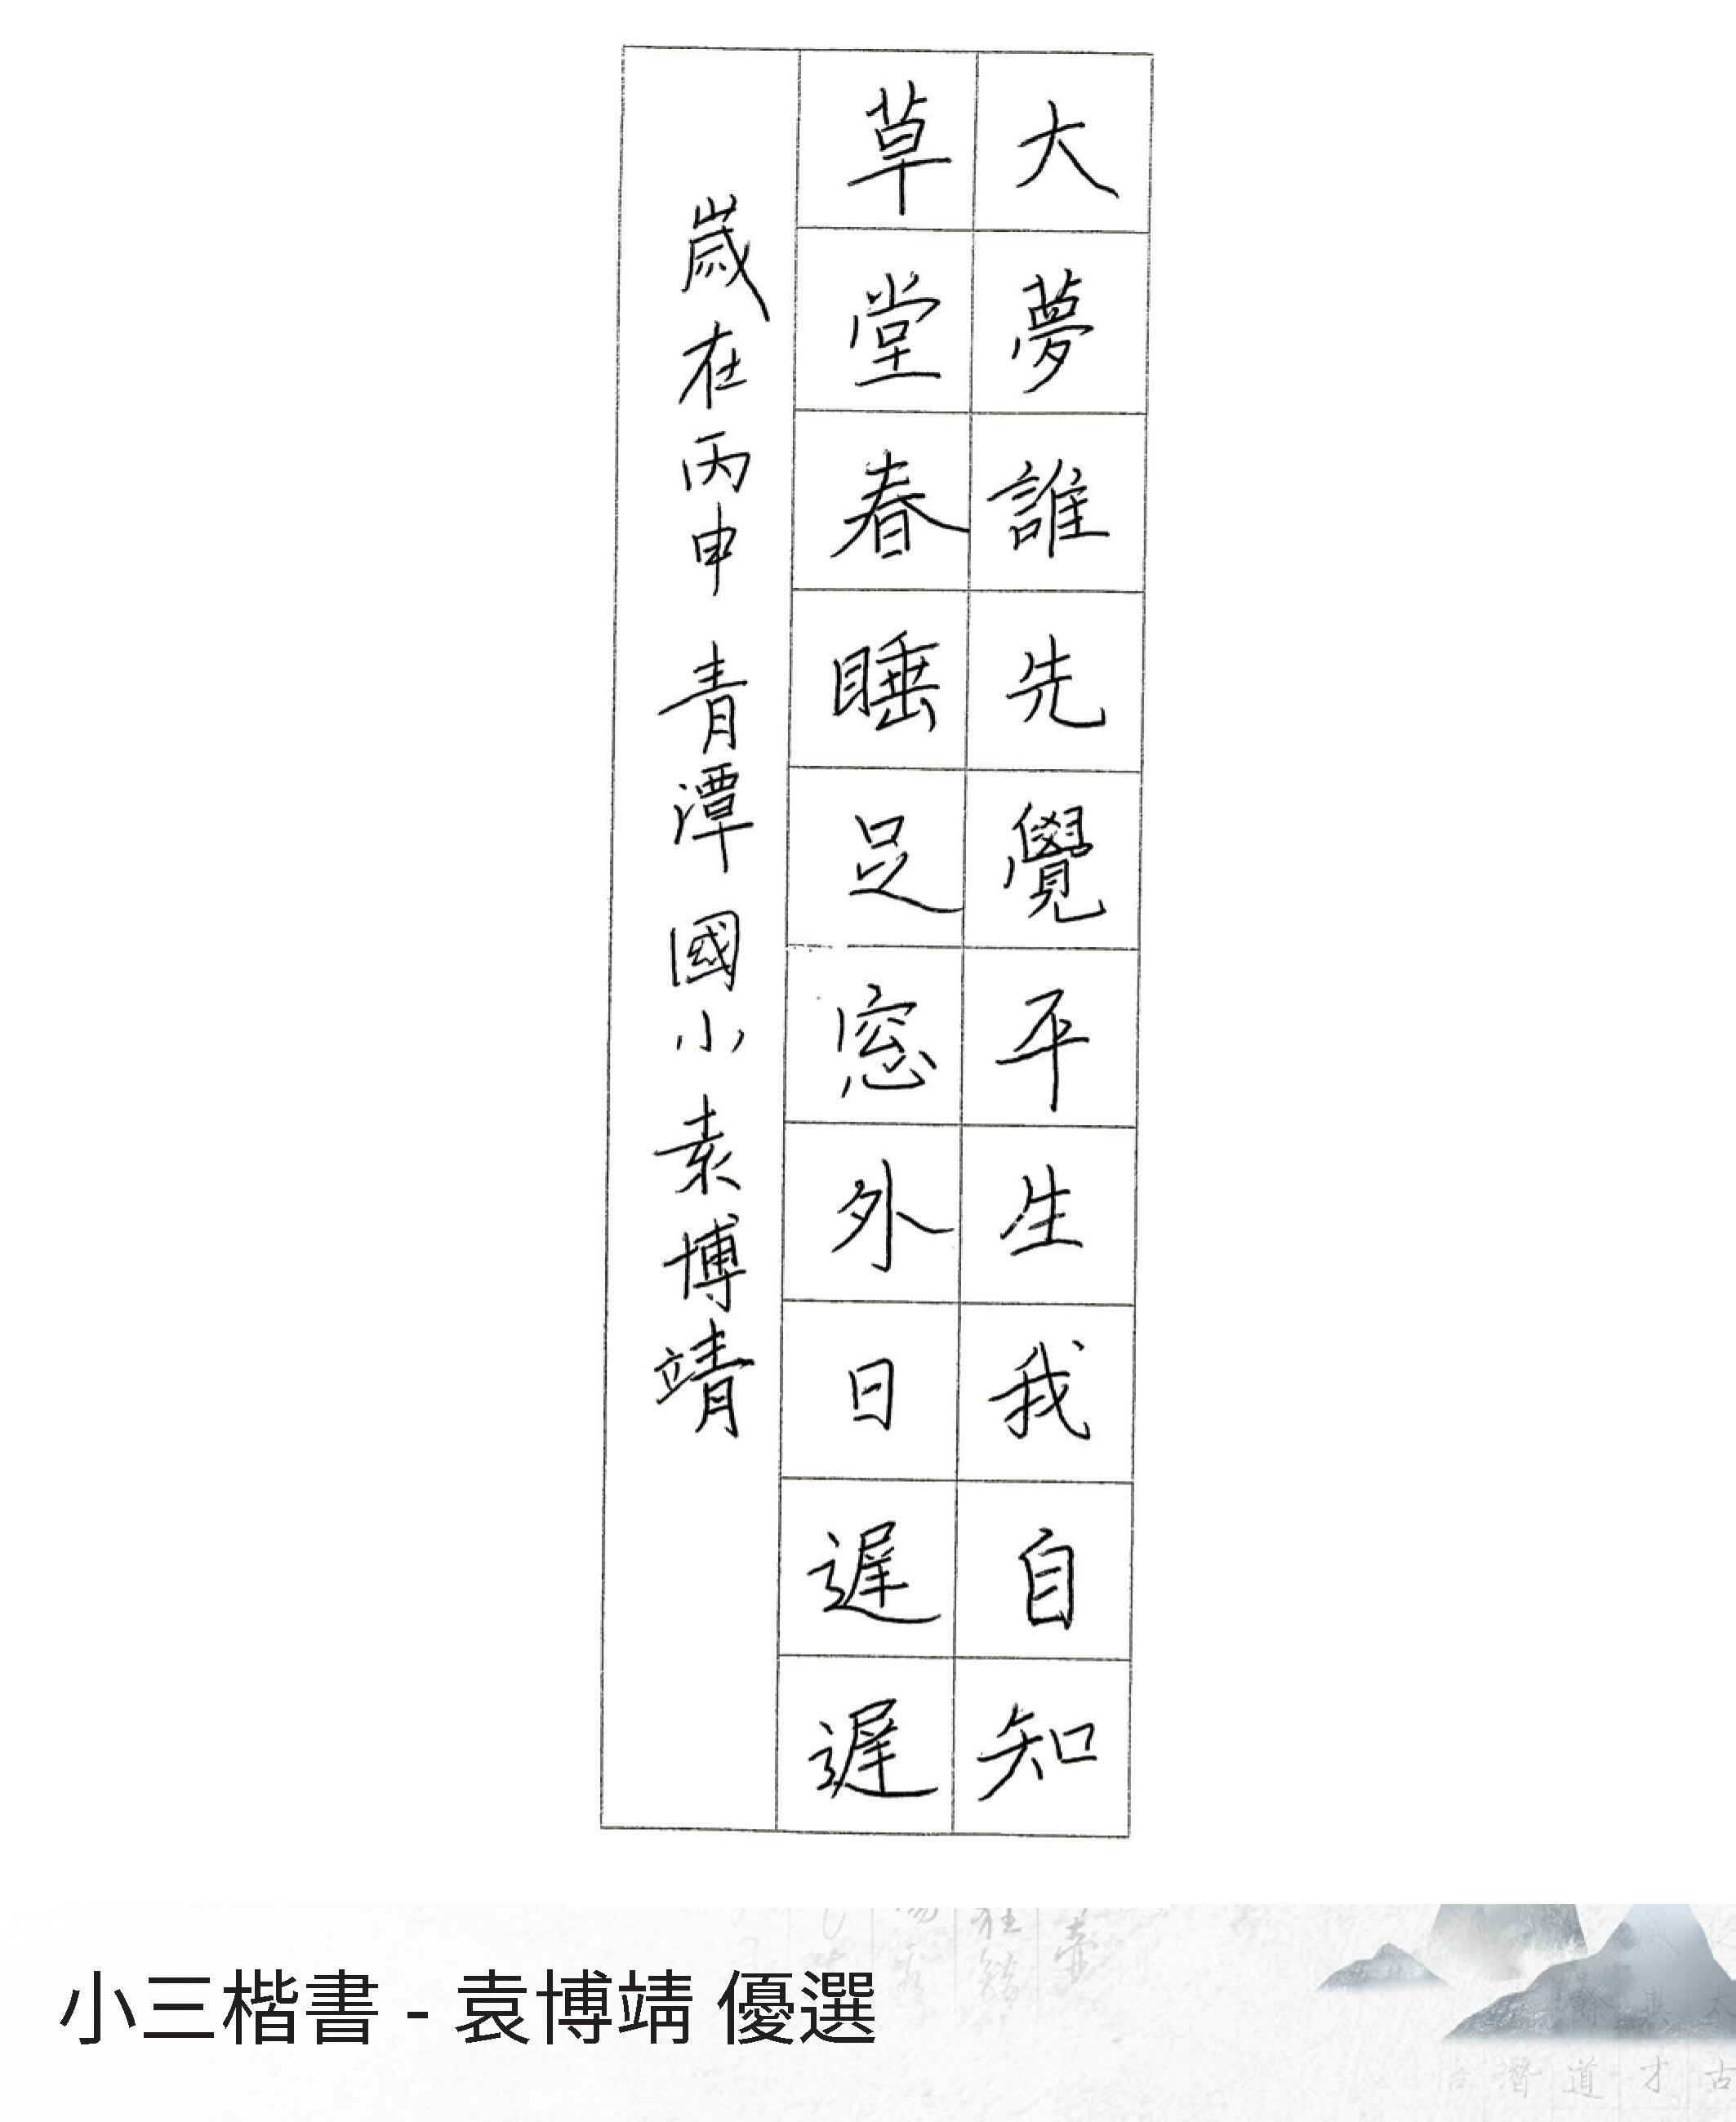 大夢誰先覺平生我自知
草堂春睡足窓外日遲遲
歲在丙申 青潭國小 袁博靖
小三楷書 - 袁博靖 優選